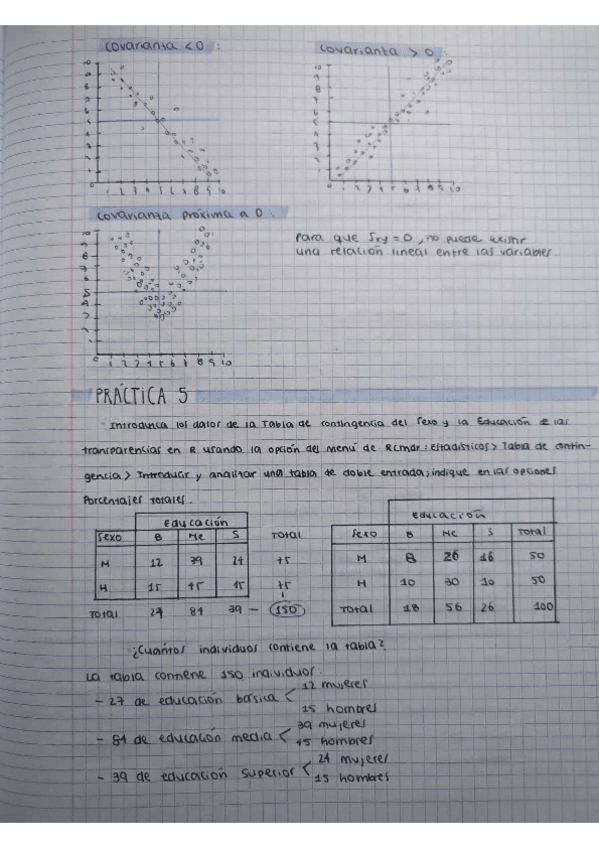 Covarianza < 0 :
Covarianza > 0 :
10
9
8
7
6
5
4
3
2
1
0 1 2 3 4 5 6 7 8 9 10
10
9
8
7
6
5
4
3
2
1
0 1 2 3 4 5 6 7 8 9 10
Covarianza próxima a 0 :
Para que Sxy = 0, no puede existir
una relación lineal entre las variables.
10
9
8
7
6
5
4
3
2
1
0 1 2 3 4 5 6 7 8 9 10
PRÁCTICA 5
Introduzca los datos de la Tabla de contingencia del Sexo y la Educación de las
transparencias en R usando la opción del menú de Rcmdr: Estadísticos > Tabla de contin-
gencia > Introducir y analizar una tabla de doble entrada; indique en las opciones
Porcentajes totales.
Educación
Sexo B Me S Total
M 12 39 24 75
H 15 45 15 75
Total 27 84 39 — 150
Educación
Sexo B Me S Total
M 8 26 16 50
H 10 30 10 50
Total 18 56 26 100
¿Cuántos individuos contiene la tabla?
La tabla contiene 150 individuos.
- 27 de educación básica < 12 mujeres
15 hombres
- 84 de educación media < 39 mujeres
45 hombres
- 39 de educación superior < 24 mujeres
15 hombres